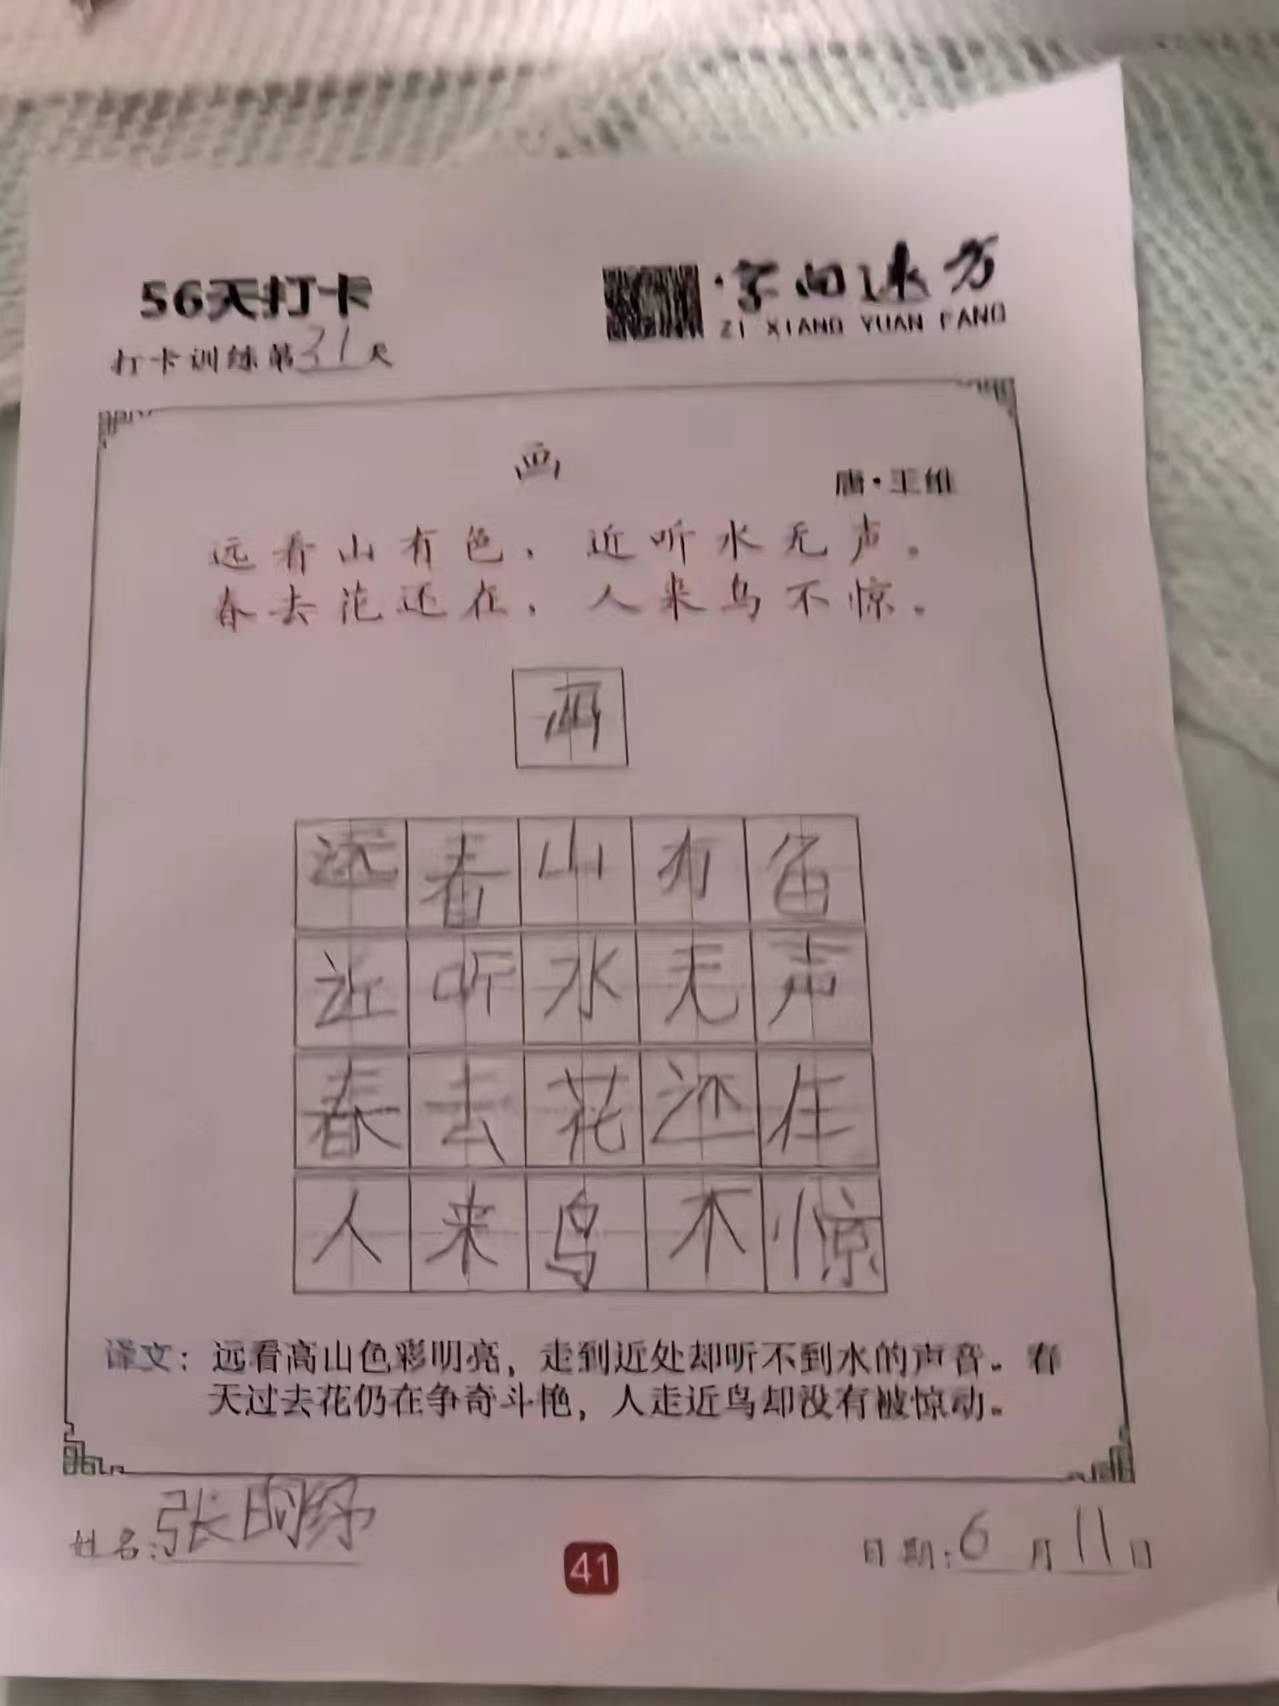 56天打卡
字向远方
ZI XIANG YUAN FANG
打卡训练第31天
画
唐·王维
远看山有色，近听水无声。
春去花还在，人来鸟不惊。
画
远看山有色
近听水无声
春去花还在
人来鸟不惊
译文：远看高山色彩明亮，走到近处却听不到水的声音。春
天过去花仍在争奇斗艳，人走近鸟却没有被惊动。
姓名：张
41
日期：6月11日